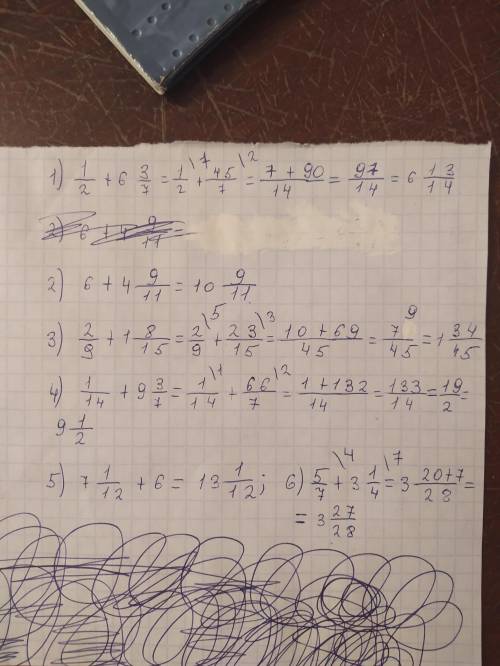 1) 1/2 + 6 3/7 = 1/2 \7 + 45/7 \2 = (7 + 90)/14 = 97/14 = 6 13/14
2) 6 + 4 9/11 =
2) 6 + 4 9/11 = 10 9/11
3) 2/9 + 1 8/15 = 2/9 \5 + 23/15 \3 = (10 + 69)/45 = 79/45 = 1 34/45
4) 1/14 + 9 3/7 = 1/14 \1 + 66/7 \2 = (1 + 132)/14 = 133/14 = 19/2 =
9 1/2
5) 7 1/12 + 6 = 13 1/12; 6) 5/7 \4 + 3 1/4 \7 = 3 (20+7)/28 =
= 3 27/28